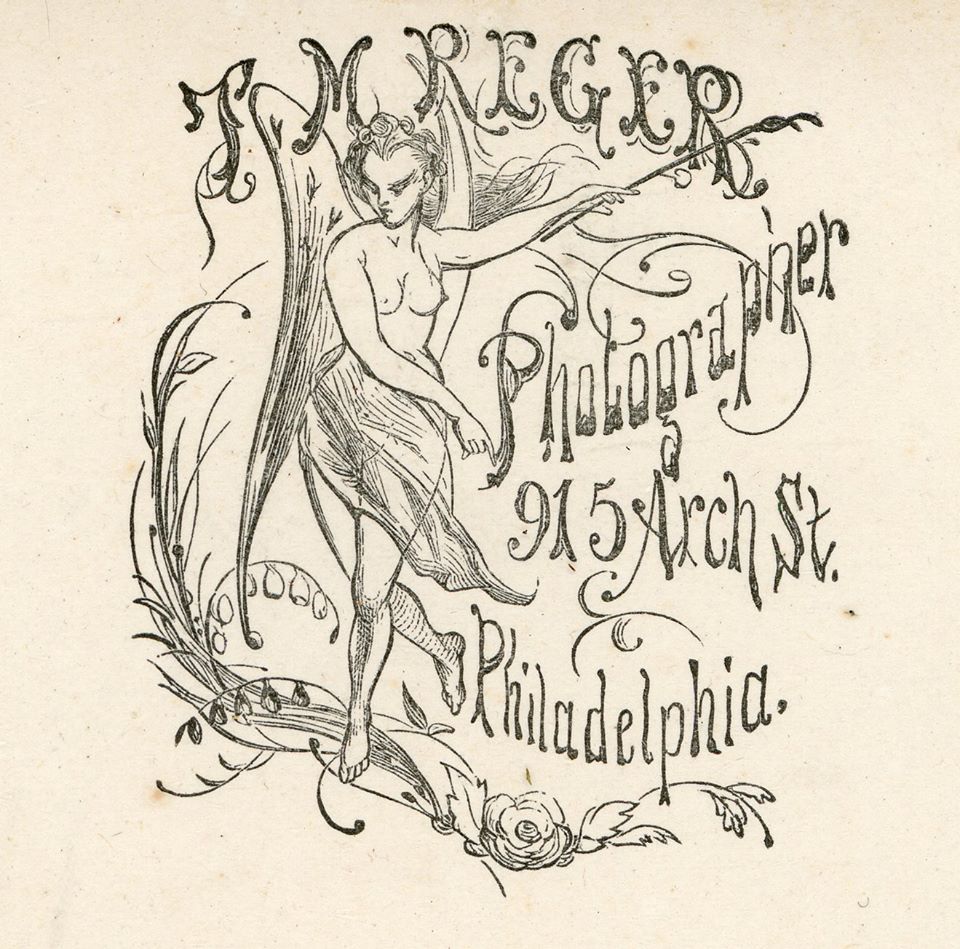 T M REGER
Photographer
915 Arch St.
Philadelphia.